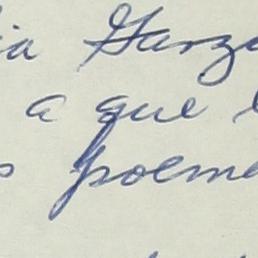 ia Garz
a que
poem